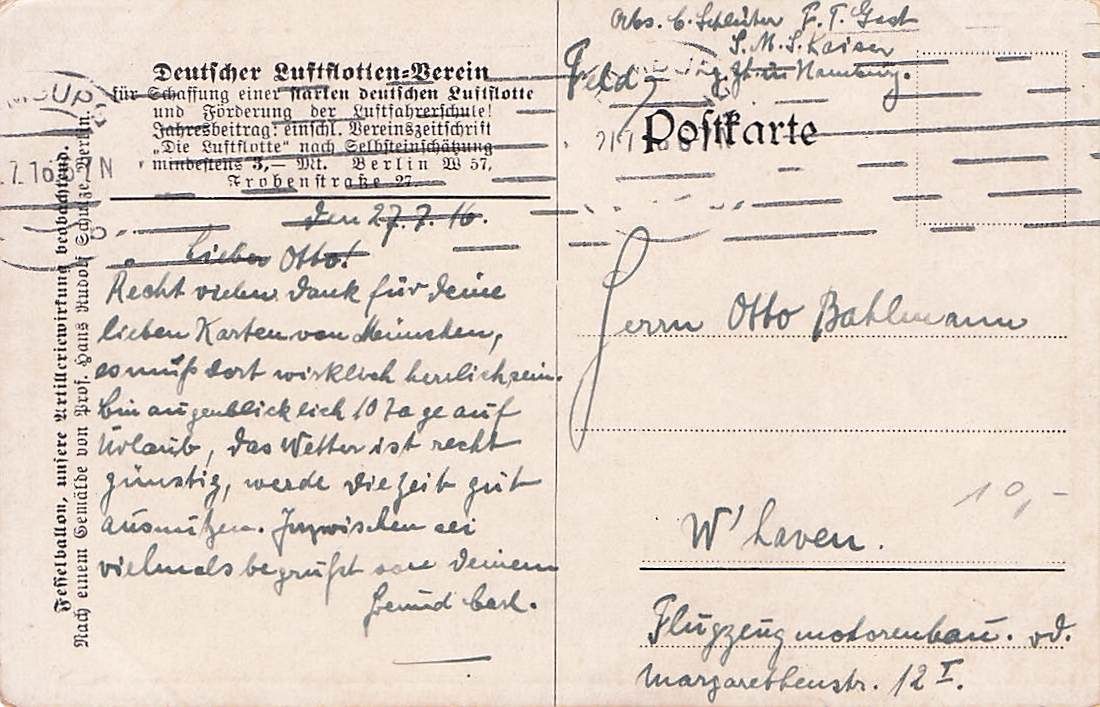 Deutscher Luftflotten=Verein
für Schaffung einer starken deutschen Luftflotte
und Förderung der Luftfahrerschule!
Jahresbeitrag: einschl. Vereinszeitschrift
„Die Luftflotte“ nach Selbsteinschätzung
mindestens 3,— Mk. Berlin W 57,
Frobenstraße 27.
Fesselballon, unsere Artilleriewirkung beobachtend.
Nach einem Gemälde von Prof. Hans Rudolf Schulze, Berlin.
den 27.7.16.
Lieber Otto!
Recht vielen Dank für deine
lieben Karten von München,
es muß dort wirklich herrlich sein.
bin augenblicklich 10 Tage auf
Urlaub, das Wetter ist recht
günstig, werde die Zeit gut
ausnützen. Inzwischen sei
vielmals begrüßt von deinem
Freund Carl.
Abs. C. Schlüter F. T. Gast
S. M. S. Kaiser
z. Zt. in Hamburg.
Feld
Postkarte
Herrn Otto Bahlmann
10,-
W'haven.
Flugzeugmotorenbau. od.
Margarethenstr. 12 I.